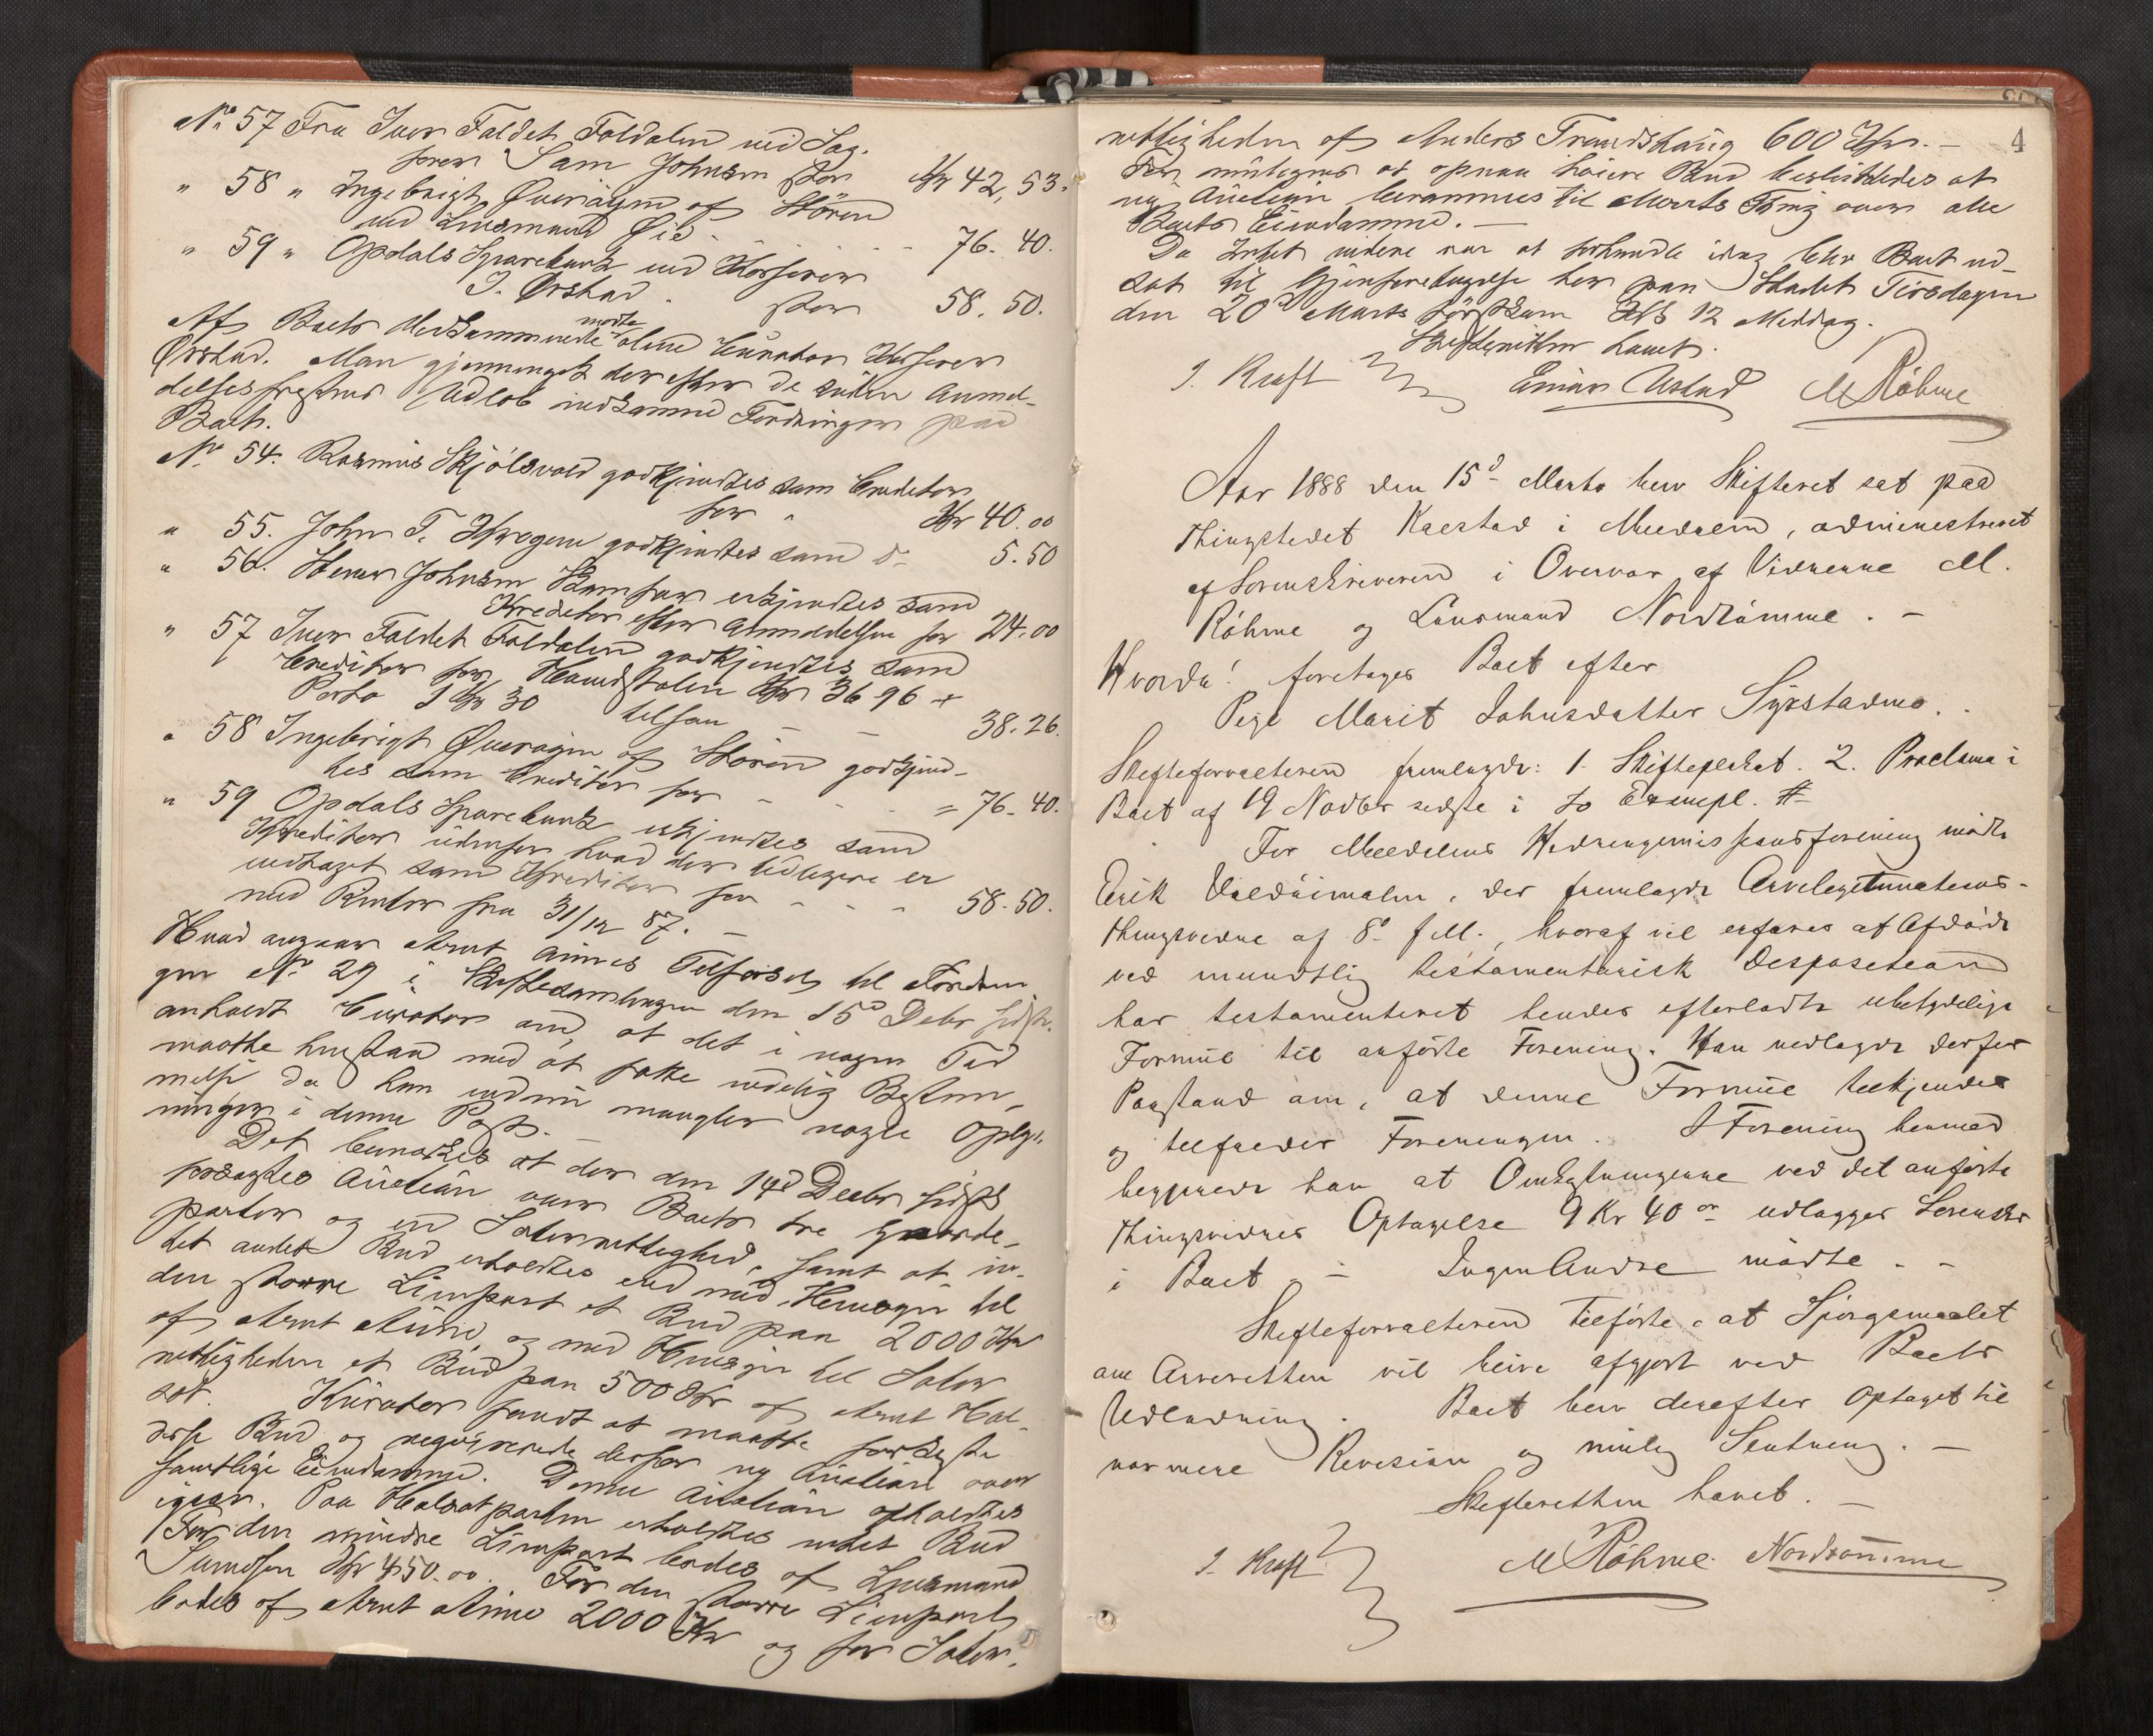 No 57 Fra Iver Faldet Foldalen ved Sag-
fører Sam Johnsen stor Kr 42,53.
" 58 " Ingebrigt Øveragen af Støren
ved Lensmand Øie - - - 76.40.
" 59 " Opdals Sparebank ved Kasserer
J. Ørstad. stor 58.50.
Af Boets Vedkommende mødte alene Curator Kasserer
Ørstad. Man gjennemgik derefter de siden Anmel-
delsesfristens Udløb indkomne Fordringer paa
Boet.
No 54. Rasmus Skjølsvold godkjendtes som Creditor
for - Kr 40.00
" 55. John T. godkjendtes som do 5.50
" 56. Johnsen erkjendtes som
Kreditor efter Anmeldelsen for 24.00
" 57 Iver Faldet Foldalen godkjendtes som
Creditor for Hovedstolen Kr 36 96 +
Porto 1 Kr 30 tilsam - - 38.26.
" 58 Ingebrigt Øveragen af Støren godkjend-
tes som Creditor for - - - = 76-40.
" 59 Opdals Sparebank erkjendtes som
Kreditor udenfor hvad der tidligere er
medtaget som Kreditor for - - - 58.50.
med Renter fra 31/12 87. -
Hvad angaar Arnt Aunes Tilførsel til Fordrin
gen No 29 i Skiftesamlingen den 15d Debr sidstl.
anholdt Curator om, at det i nogen Tid
maatte henstaa med at fatte endelig Bestem-
melse da han endnu mangler nogle Oplys-
ninger i denne Post. -
Det bemærkes at der den 14d Decbr sidstl
forsøgtes Auction over Boets tre Gaarde-
parter og en Sæterrettighed, samt at in-
tet andet Bud erholdtes end med Hensyn til
den større Limpart et Bud paa 2000 Kr
af Arnt Aune, og med Hensyn til Sæter
rettigheden et Bud paa 500 Kr af Arnt Hol-
set. Kurator fandt at maatte forkaste
disse Bud og requirerede derfor ny Auction over
samtlige Eiendomme. Denne Auction afholdtes
igaar. Paa Halsetparten erholdtes intet Bud
For den mindre Limpart bødes af Lensmand
Sundsen Kr 450.00. For den større Limpart
bødes af Arnt Aune 2000 Kr og for Sæter-
4
rettigheden af Anders Trondshaug 600 Kr. -
For muligens at opnaa høiere Bud besluttedes at
ny Auction berammes til Marts Thing over alle
Boets Eiendomme. -
Da Intet videre var at forhandle idag blev Boet ud-
sat til Gjenforetagelse her paa Stedet Tirsdagen
den 20d Marts førstkom Kl 12 Middag.
Skifteretten hævet.
J. Kraft Einar Ustad M Røhme
Aar 1888 den 15d Marts blev Skifteret sat paa
Thingstedet Kaestad i Meldalen, administreret
af Sorenskriveren i Overvær af Vidnerne M.
Røhme og Lensmand Nordrømme. -
Hvorda! foretages Boet efter
Pige Marit Johnsdatter Syrstadmo.
Skifteforvalteren fremlagde: 1. Skifteplakat. 2. Proclama i
Boet af 19 Novbr sidste i to Exempl. #
For Meldalens Hedningemissionsforening mødte
Erik , der fremlagde Arvelegitimations-
thingsvidne af 8d f M., hvoraf vil erfares at Afdøde
ved mundtlig testamentarisk Disposition
har testamenteret hendes efterladte ubetydelige
Formue til anførte Forening. Han nedlagde derfor
Paastand om, at denne Formue tilkjendes
og tilfalder Foreningen. I Forening hermed
begjærede han at Omkostningerne ved det anførte
Thingsvidnes Optagelse 9 Kr 40 ør udlægges Sorenskr
i Boet. - Ingen Andre mødte. -
Skifteforvalteren tilførte: at Spørgsmaalet
om Arveretten vil blive afgjort ved Boets
Udlodning. Boet blev derefter optaget til
nærmere Revision og mulig Slutning. -
Skifteretten hævet. -
J. Kraft M Røhme Nordrømme